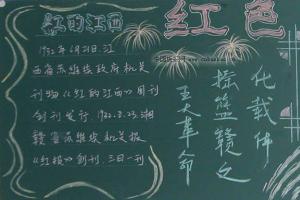 红的江西
红色
1932年6月21日江
西省苏维埃政府机关
刊物《红的江西》周刊
创刊发行.1932.8.23.湘
赣省苏维埃机关报
《红报》创刊.三日一刊
化载体
摇篮赣之
王大革命